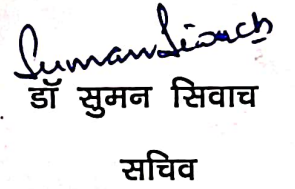 Suman Siwach
डॉ सुमन सिवाच
सचिव